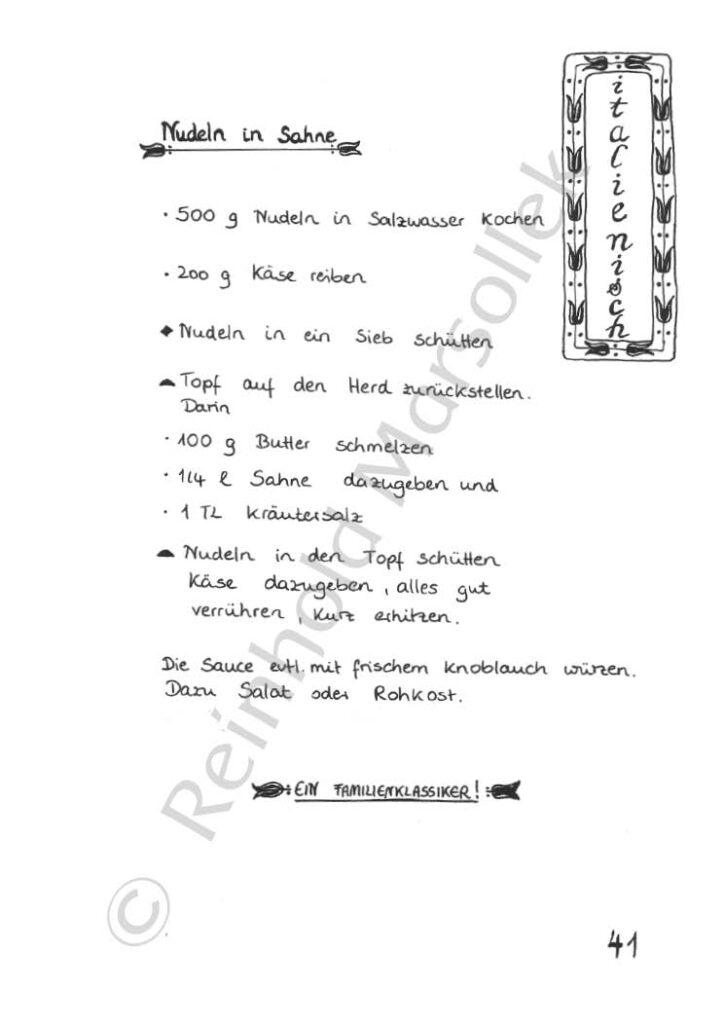 Nudeln in Sahne
italienisch
· 500 g Nudeln in Salzwasser kochen
· 200 g Käse reiben
◆ Nudeln in ein Sieb schütten
Topf auf den Herd zurückstellen.
Darin
· 100 g Butter schmelzen
· 1/4 l Sahne dazugeben und
· 1 TL Kräutersalz
Nudeln in den Topf schütten
Käse dazugeben, alles gut
verrühren, kurz erhitzen.
Die Sauce evtl. mit frischem Knoblauch würzen.
Dazu Salat oder Rohkost.
EIN FAMILIENKLASSIKER!
© Reinhold Marsollek
41